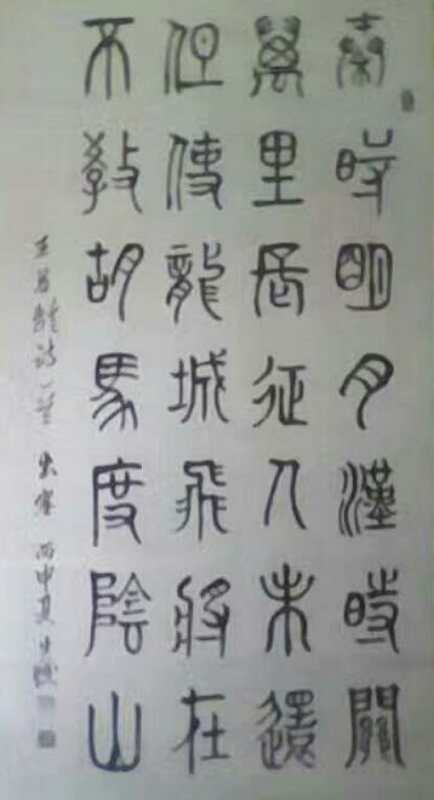 秦時明月漢時關
萬里長征人未還
但使龍城飛將在
不教胡馬度陰山
王昌龄诗一首 出塞 丙申夏